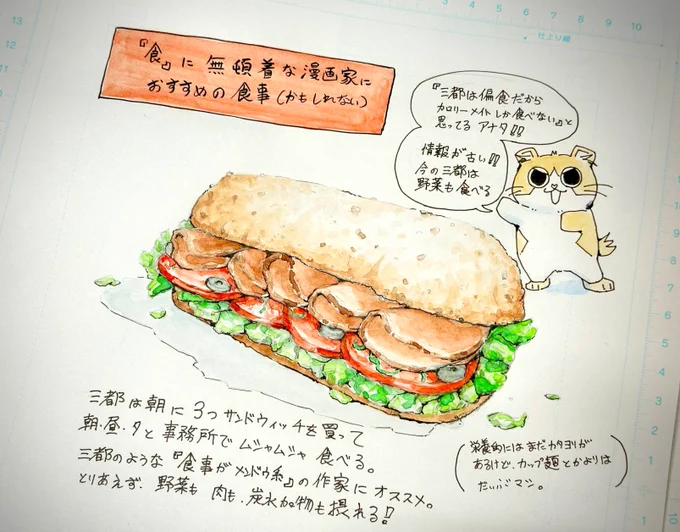 『食』に無頓着な漫画家に
おすすめの食事(かもしれない)
『三都は偏食だから
カロリーメイトしか食べない』と
思ってるアナタ!!
情報が古い!!
今の三都は
野菜も食べる
三都は朝に3つサンドウィッチを買って
朝・昼・夕と事務所でムシャムシャ食べる。
三都のような『食事がメンドウ系』の作家にオススメ。
とりあえず、野菜も肉も、炭水加物も摂れる!
(栄養的にはまだカタヨリが
あるけど、カップ麺とかよりは
だいぶマシ。)
仕上り線
13
12
11
6
7
8
9
10